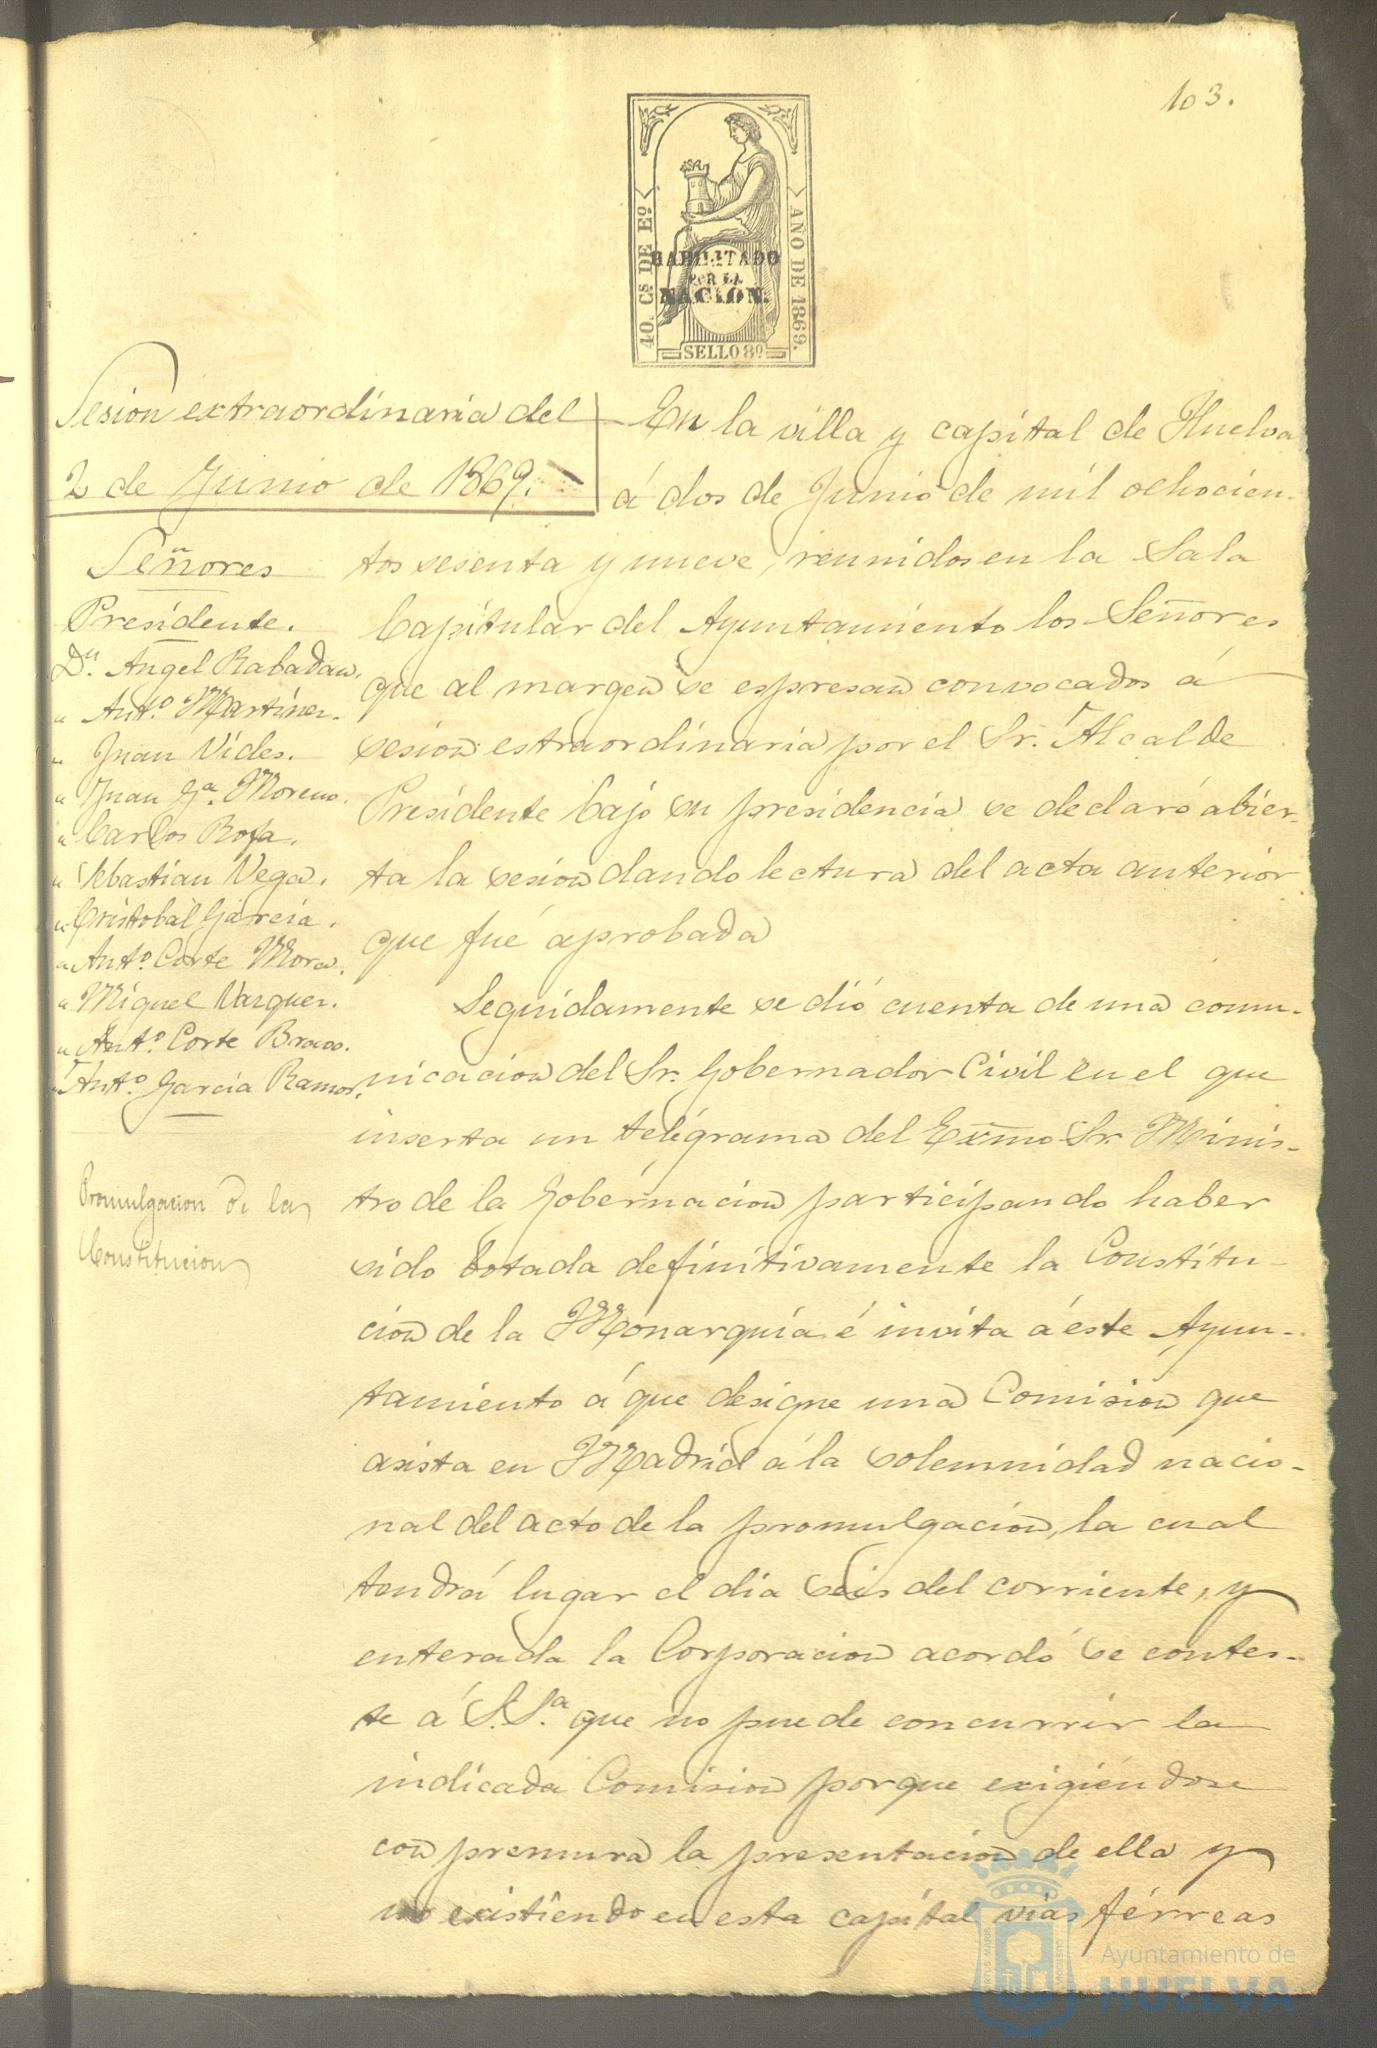 103.
40. Cs DE Eo
AÑO DE 1869.
HABILITADO
POR LA
NACION.
SELLO 8o
Sesion extraordinaria del
2 de Junio de 1869.
Señores
Presidente.
Dn. Angel Rabadan.
" Anto. Martinez.
" Juan Vides.
" Juan Ga. Moreno.
" Carlos Rofa.
" Sebastian Vega.
" Cristobal Garcia.
" Anto. Corte Mora.
" Miguel Vazquez.
" Anto. Corte Bravo.
" Anto. Garcia Ramos.
Promulgacion de la
Constitucion
En la villa y capital de Huelva
á dos de Junio de mil ochocien-
tos sesenta y nueve, reunidos en la Sala
Capitular del Ayuntamiento los Señores
que al margen se espresan convocados á
sesion estraordinaria por el Sr. Alcalde
Presidente bajo su presidencia se declaró abier-
ta la sesion dando lectura del acta anterior
que fué aprobada
Seguidamente se dió cuenta de una comu-
nicacion del Sr. Gobernador Civil en el que
inserta un telégrama del Exmo Sr. Minis-
tro de la Gobernacion participando haber
sido botada definitivamente la Constitu-
cion de la Monarquia é invita á éste Ayun-
tamiento á que designe una Comision que
asista en Madrid á la solemnidad nacio-
nal del acto de la promulgacion, la cual
tendrá lugar el dia seis del corriente, y
enterada la Corporacion acordó se contes-
te á S. Sa. que no puede concurrir la
indicada Comision porque exigiéndose
con premura la presentacion de ella y
no existiendo en esta capital vias férreas
Ayuntamiento de
HUELVA